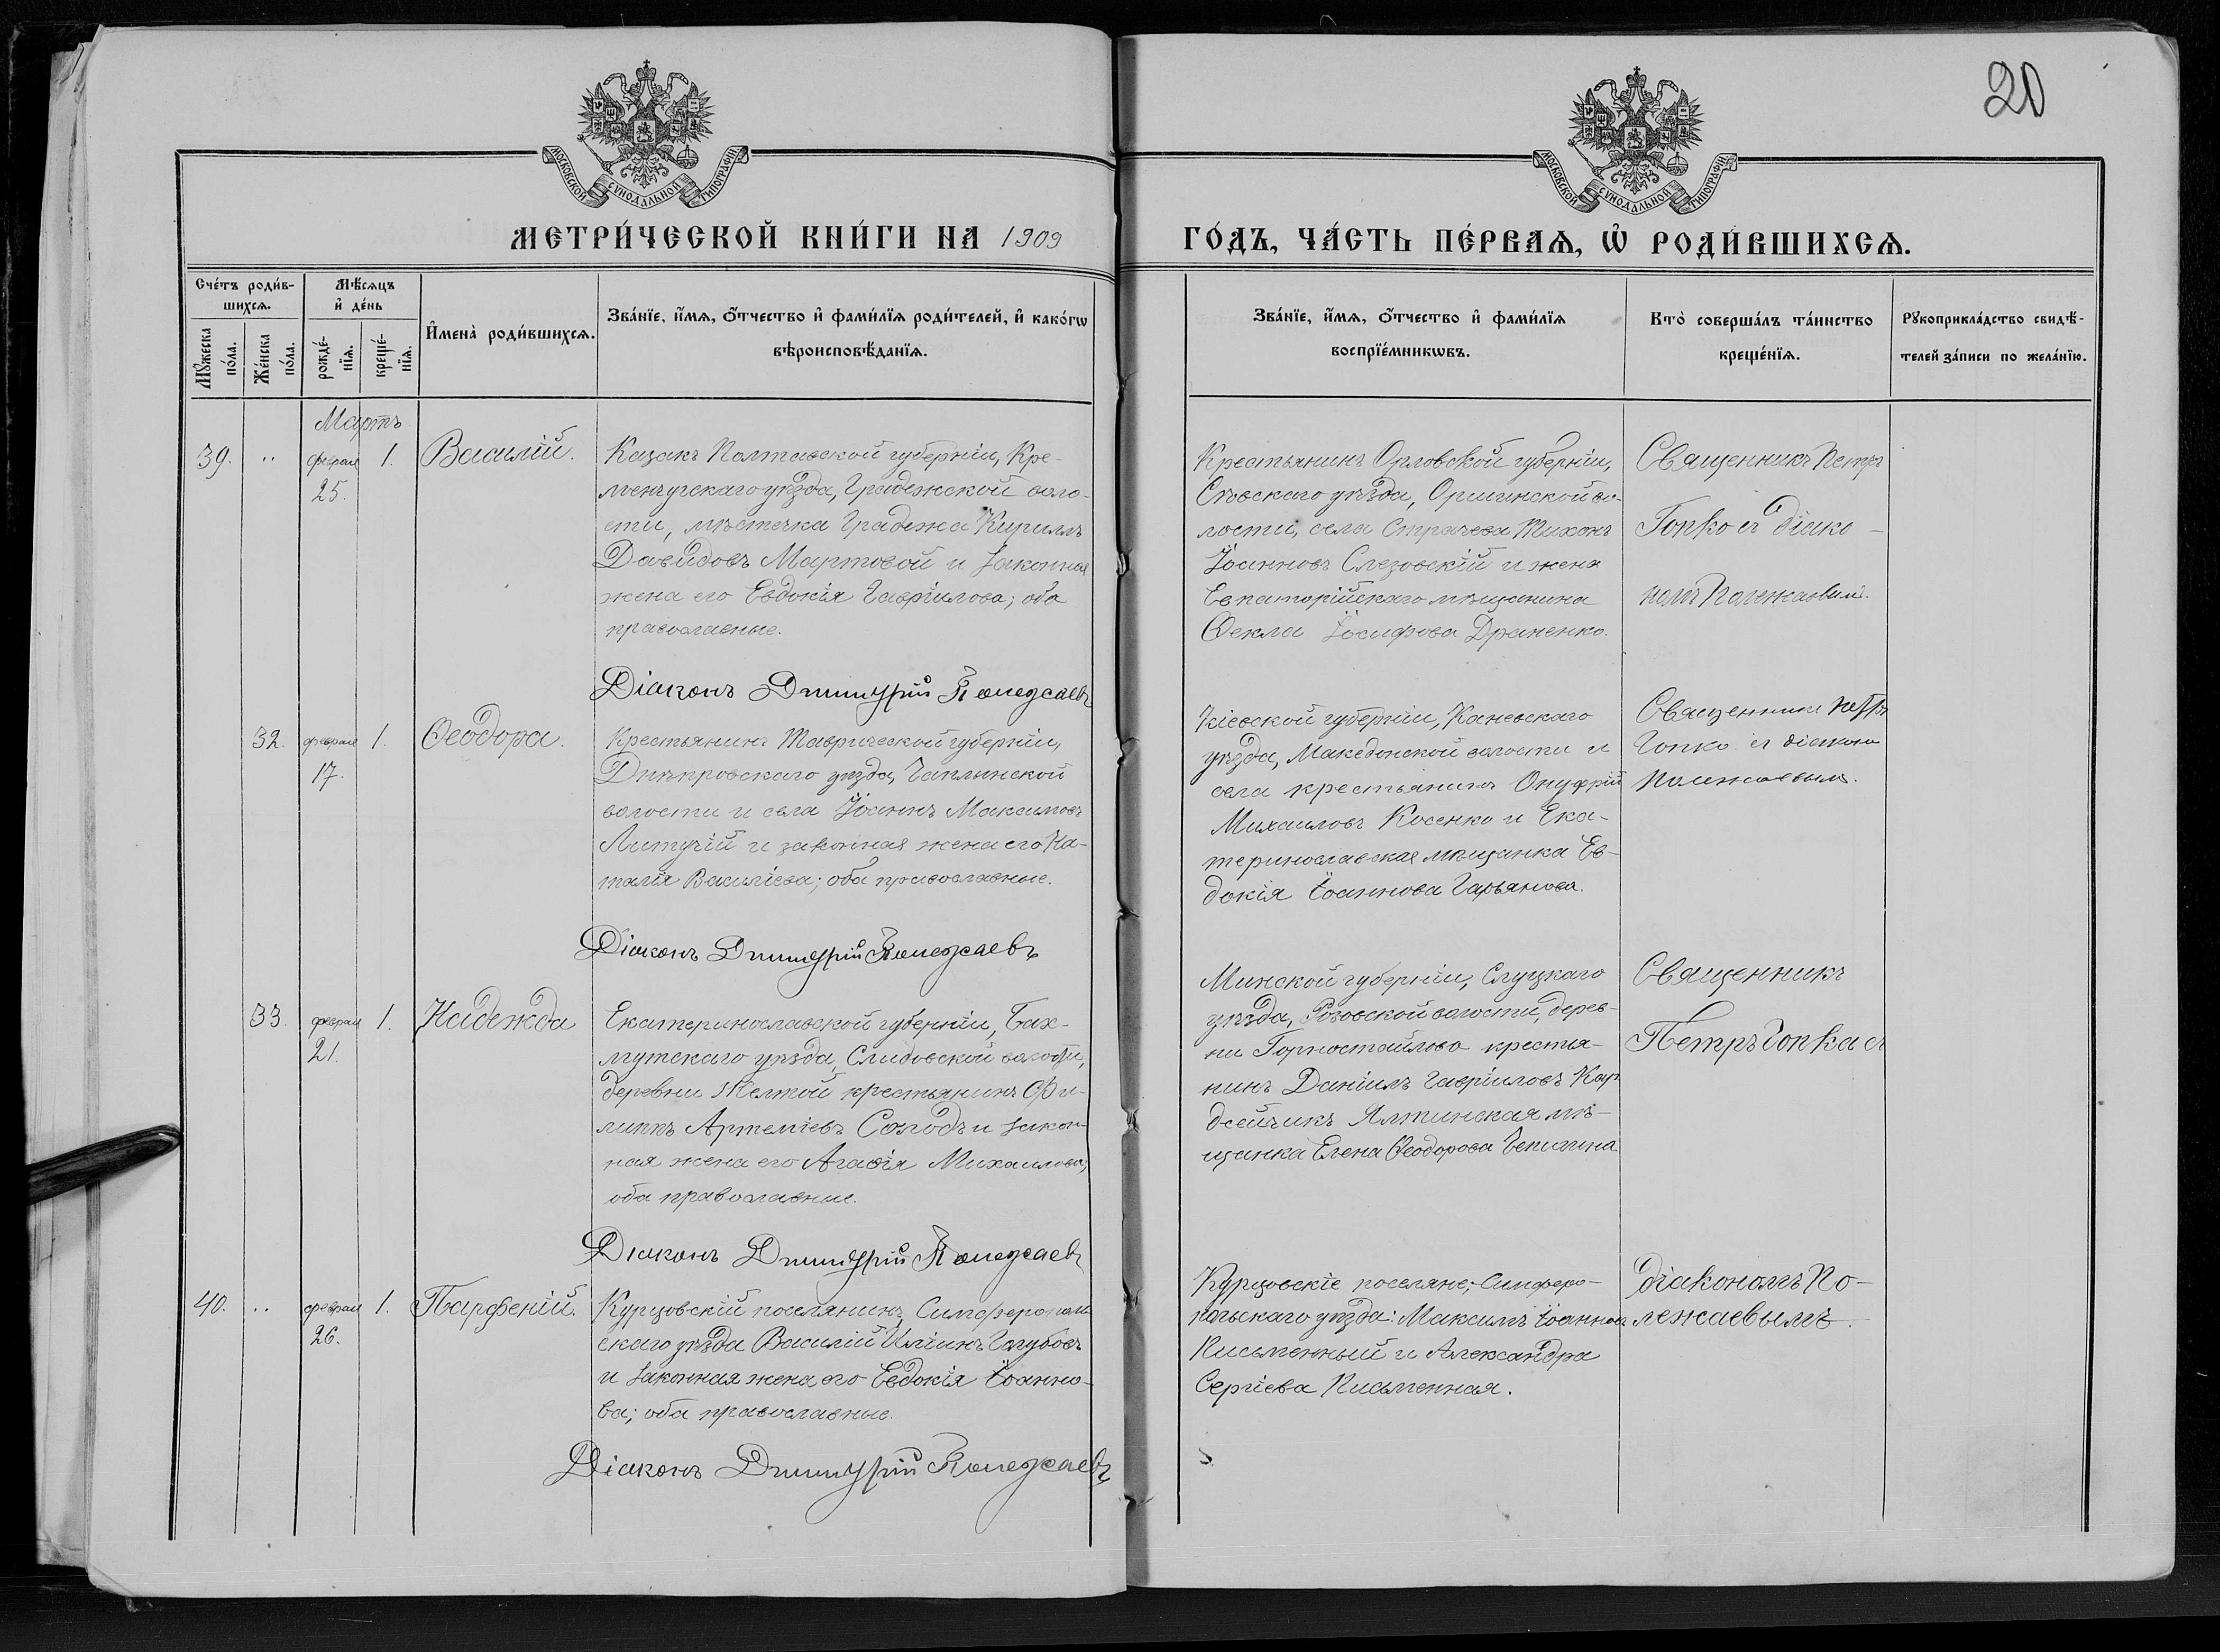 20
МОСКОВСКОЙ СѴНОДАЛЬНОЙ ТИПОГРАФІИ
МОСКОВСКОЙ СѴНОДАЛЬНОЙ ТИПОГРАФІИ
МЕТРИ́ЧЕСКОЙ КНИ́ГИ НА 1909
ГО́ДЪ, ЧА́СТЬ ПЕ́РВАѦ, Ѡ҆ РОДИ́ВШИХСѦ.
Сче́тъ роди́в-
шихсѧ.
Мꙋ́жеска
по́ла.
Же́нска
по́ла.
Мѣ́сѧцъ
и҆ де́нь
рожде́-
нїѧ.
креще́-
нїѧ.
И҆мена̀ роди́вшихсѧ.
Зва́нїе, и҆́мѧ, ѻ҆́тчество и҆ фами́лїѧ роди́телей, и҆ како́гѡ
вѣроисповѣ́данїѧ.
Зва́нїе, и҆́мѧ, ѻ҆́тчество и҆ фами́лїѧ
воспрїе́мникѡвъ.
Кто̀ соверша́лъ та́инство
креще́нїѧ.
Рꙋкоприкла́дство свидѣ́-
телей за́писи по жела́нїю.
Мартъ
39. " феврал 1. Василій.
25.
Казакъ Полтавской губерніи, Кре-
менчугскаго уѣзда, Градежской воло-
сти, мѣстечка Градежа Кириллъ
Давидовъ Мартовой и законная
жена его Евдокія Гавріилова; оба
православные.
Діаконъ Димитрій Полежаевъ
Крестьянинъ Орловской губерніи,
Сѣвскаго уѣзда, во-
лости, села Страчева Тихонъ
Іоанновъ Слезовскій и жена
Евпаторійскаго мѣщанина
Ѳекла Іосифова Драненко.
Священникъ Петръ
Гопко съ діако-
номъ Полежаевым.
32. феврал 1. Ѳеодора.
17.
Крестьянинъ Таврической губерніи,
Днѣпровскаго уѣзда, Чаплынской
волости и села Іоаннъ Максимовъ
Литучій и законная жена его На-
талія Василіева; оба православные.
Діаконъ Димитрій Полежаевъ
Кіевской губерніи, Каневскаго
уѣзда, Македонской волости и
села крестьянинъ Онуфрій
Михаиловъ Косенко и Ека-
теринославская мѣщанка Ев-
докія Іоаннова Гарьянова.
Священникъ Петръ
Гопко съ діаконо
Полежаевымъ.
33. феврал 1. Надежда
21.
Екатеринославской губерніи, Бах-
мутскаго уѣзда, волости,
деревни Желтой крестьянинъ Фи-
липпъ Артеміевъ Солодъ и закон-
ная жена его Агаѳія Михаилова,
оба православные.
Діаконъ Димитрій Полежаевъ
Минской губерніи, Слуцкаго
уѣзда, волости, дерев-
ни крестья-
нинъ Даніилъ Гавріиловъ Кар-
дейчикъ Ялтинская мѣ-
щанка Елена Ѳеодорова Чепигина.
Священникъ
Петръ Гопка съ
40. " феврал 1. Парфеній.
26.
Курцовскій поселянинъ Симферополь
скаго уѣзда Василій Иліинъ Голубовъ
и законная жена его Евдокія Іоанно-
ва; оба православные.
Діаконъ Димитрій Полежаевъ
Курцовскіе поселяне, Симферо-
польскаго уѣзда: Максимъ Іоаннов
Письменный и Александра
Сергіева Письменная.
діакономъ По-
лежаевымъ.